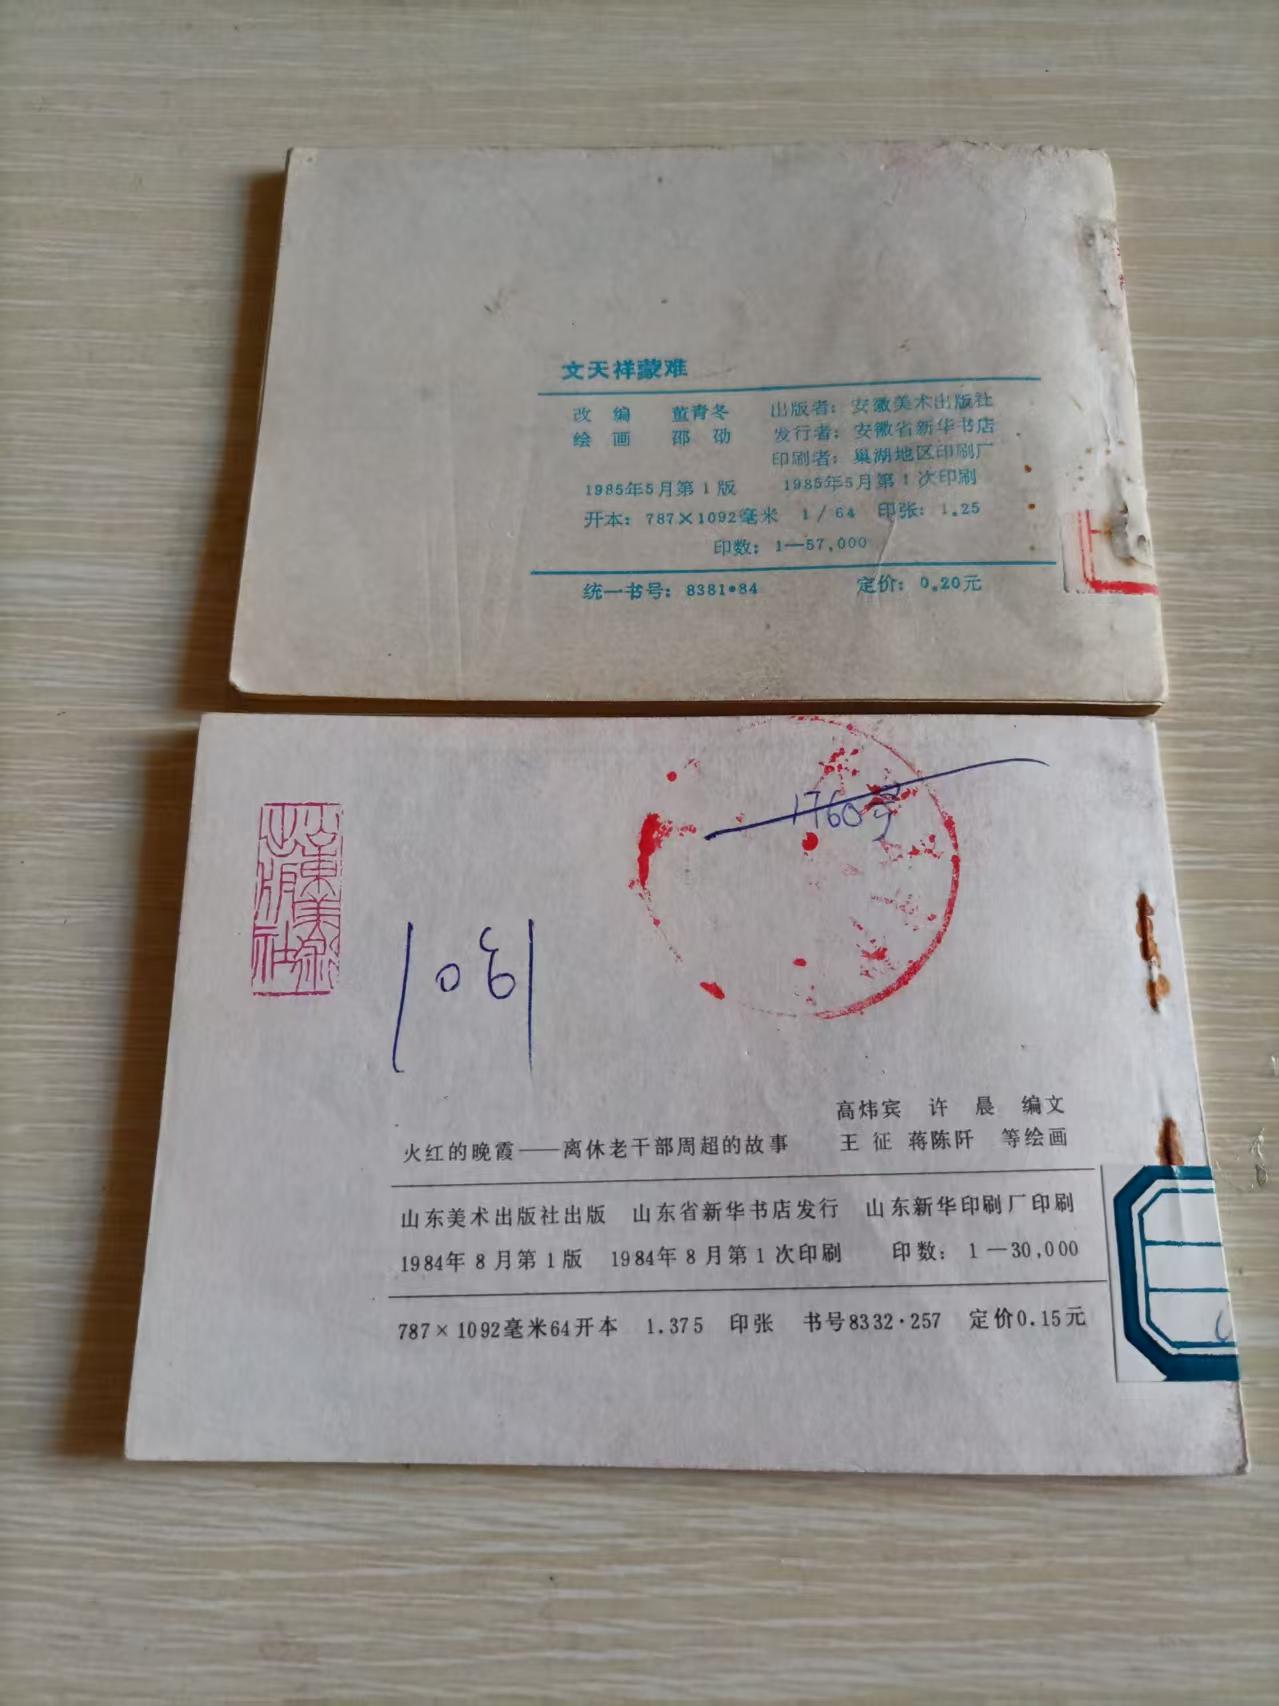 文天祥蒙难
改 编 董青冬 出版者：安徽美术出版社
绘 画 邵 劭 发行者：安徽省新华书店
印刷者：巢湖地区印刷厂
1985年5月第1版 1985年5月第1次印刷
开本：787×1092毫米 1/64 印张：1.25
印数：1—57,000
统一书号：8381·84 定价：0.20元
1760号
山東美術
出版社
1061
高炜宾 许 晨 编文
火红的晚霞——离休老干部周超的故事 王 征 蒋陈阡 等绘画
山东美术出版社出版 山东省新华书店发行 山东新华印刷厂印刷
1984年8月第1版 1984年8月第1次印刷 印数：1—30,000
787×1092毫米64开本 1.375 印张 书号8332·257 定价0.15元